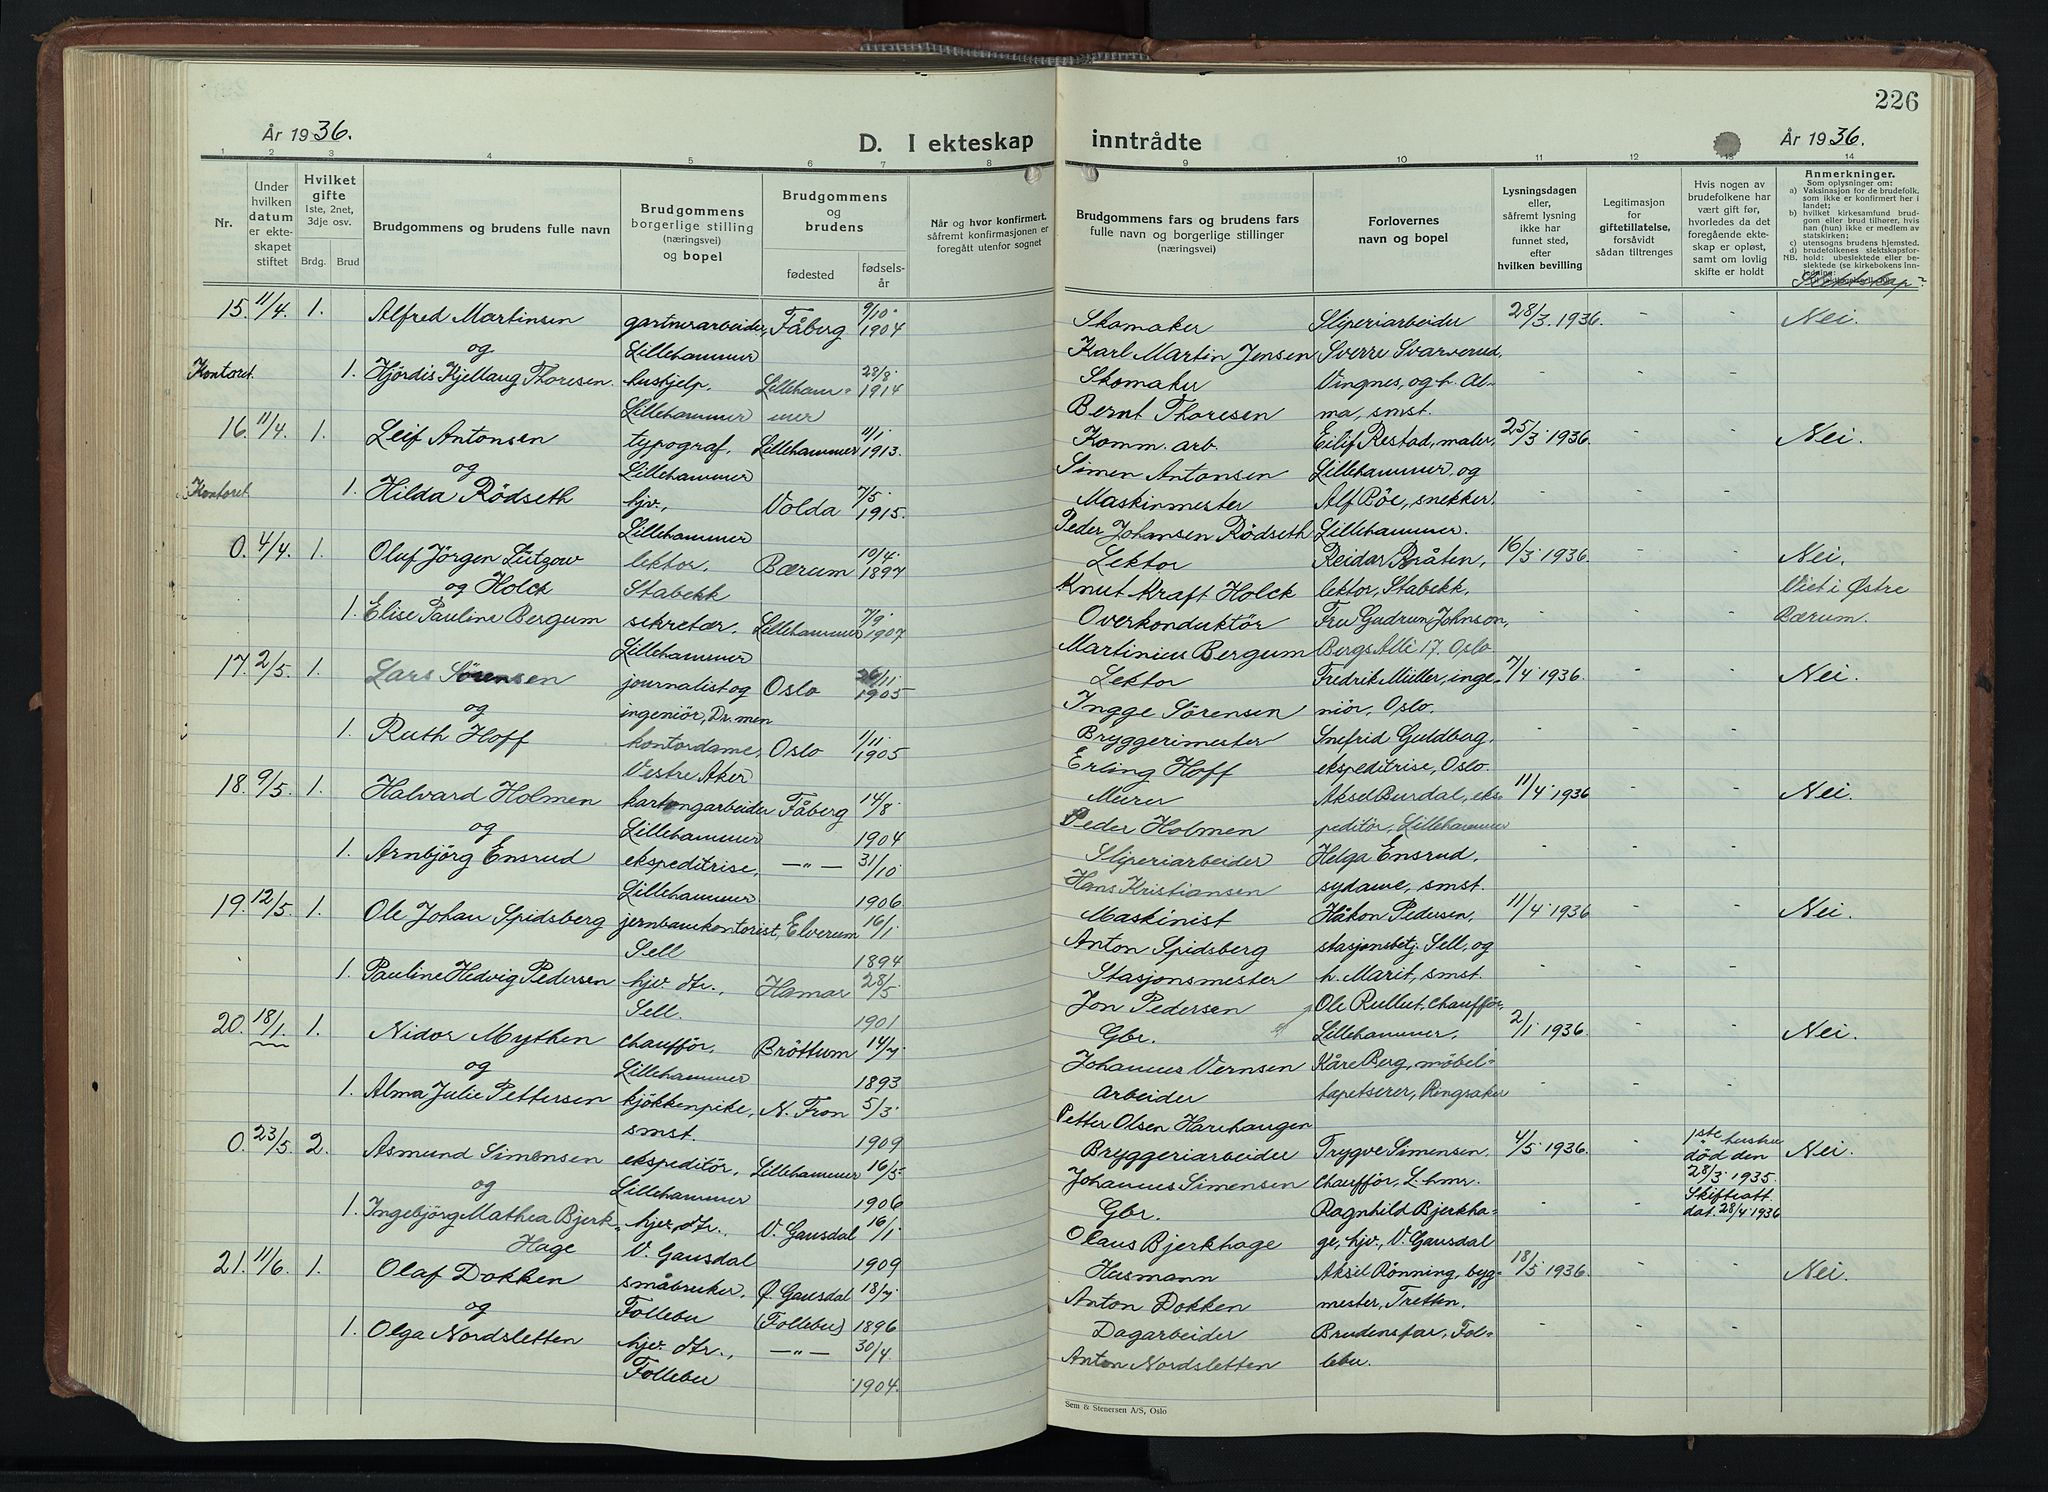 226
År 1936.
D. I ekteskap inntrådte
År 1936.
1 2 3 4 5 6 7 8 9 10 11 12 13 14
Nr.
Under hvilken datum er ekteskapet stiftet
Hvilket gifte 1ste, 2net, 3dje osv.
Brdg. Brud
Brudgommens og brudens fulle navn
Brudgommens borgerlige stilling (næringsvei) og bopel
Brudgommens og brudens
fødested
fødselsår
Når og hvor konfirmert, såfremt konfirmasjonen er foregått utenfor sognet
Brudgommens fars og brudens fars fulle navn og borgerlige stillinger (næringsvei)
Forlovernes navn og bopel
Lysningsdagen eller, såfremt lysning ikke har funnet sted, efter hvilken bevilling
Legitimasjon for giftetillatelse, forsåvidt sådan tiltrenges
Hvis nogen av brudefolkene har vært gift før, hvorledes da det foregående ekteskap er opløst, samt om lovlig skifte er holdt
Anmerkninger.
Som oplysninger om:
a) Vaksinasjon for de brudefolk. som ikke er konfirmert her i landet;
b) hvilket kirkesamfund brudgom eller brud tilhører, hvis han (hun) ikke er medlem av statskirken;
c) utensogns brudens hjemsted.
d) brudefolkenes slektskapsforhold: ubeslektede eller beslektede (se kirkebokens Innledning:
NB.
15. 11/4. 1. Alfred Martinsen gartnerarbeider, Fåberg 9/10. 1904 Skomaker Sliperiarbeider 28/3. 1936. - - Nei.
og Lillehammer Karl Martin Jensen Sverre Svarverud,
Kontoret. 1. Hjördis Kjellaug Thoresen. hushjelp, Lilleham- 28/8. 1914 Skomaker Vingnes, og h. Al- - - -
Lillehammer mer Bernt Thoresen ma, smst.
16. 11/4. 1. Leif Antonsen typograf, Lillehammer 11/1 1913. Komm. arb. Eilif Restad, maler, 25/3 1936. - - Nei.
og Lillehammer Simen Antonsen Lillehammer, og
Kontoret 1. Hilda Rödseth hjv., Volda 7/5. 1915. Maskinmester Alf Böe, snekker, - - -
Lillehammer Peder Johansen Rødseth Lillehammer.
0. 4/4. 1. Oluf Jörgen Lützow lektor, Bærum 10/4. 1897 Lektor Reidar Bråten, 16/3 1936. - - Nei.
og Holck Stabekk Knut Kraft Holck lektor, Stabekk, Viet i Østre
1. Elise Pauline Bergum sekretær, Lillehammer 7/9. 1907 Overkonduktör Fru Gudrun Johnson, - - - Bærum.
Lillehammer Martinius Bergum Bergs Allé 17, Oslo
17. 2/5. 1. Lars Sørensen journalist og Oslo 26/11 1905 Lektor Fredrik Müller, inge- 7/4 1936. - - Nei.
og ingeniör, Dr.men Ingge Sørensen niör, Oslo.
1. Ruth Hoff kontordame, Oslo 1/11. 1905 Bryggerimester Snefrid Guldberg, - - -
Vestre Aker Erling Hoff ekspeditrise, Oslo.
18. 9/5. 1. Halvard Holmen kartongarbeider Fåberg 14/8. Murer Aksel Burdal, eks 11/4 1936 - - Nei.
og Lillehammer 1904 Peder Holmen peditör, Lillehammer
1. Arnbjörg Ensrud ekspeditrise, —"— 31/10. Sliperiarbeider Helga Ensrud, - - -
Lillehammer 1906 Hans Kristiansen sydame, smst.
19. 12/5. 1. Ole Johan Spidsberg jernbanekontorist, Elverum 16/1. Maskinist Håkon Pedersen, 11/4 1936 - - Nei.
Sell 1894 Anton Spidsberg stasjonsbetj. Sell, og
1. Pauline Hedvig Pedersen hjv. dtr., Hamar 28/5 Stasjonsmester h. Marit, smst. - - -
Sell. 1901 Jon Pedersen Ole Rullut, chaufför,
20. 18/1. 1. Nidor Mythen chaufför, Bröttum 14/7. Gbr. Lillehammer, 2/1 1936. - - Nei.
og Lillehammer 1893 Johannes Vernsen Kåre Berg, möbel-
1. Alma Julie Pettersen kjökkenpike, N. Fron 5/3. Arbeider tapetserer, Ringsaker - - -
smst. 1909 Petter Olsen Harehaugen
0. 23/5. 2. Asmund Simensen ekspeditör, Lillehammer 16/5 Bryggeriarbeider Trygve Simensen, 4/5 1936. - 1ste hustru død den 28/3 1935. Skifteatt. dat. 28/4 1936 Nei.
og Lillehammer 1906 Johannes Simensen chaufför, L.hmr.
1. Ingebjörg Mathea Bjerk- hjv. dtr., V. Gausdal 16/1. Gbr. Ragnhild Bjerkha- - -
Hage V. Gausdal 1909 Olaus Bjerkhage ge, hjv., V. Gausdal
21. 11/6. 1. Olaf Dokken småbruker, Ø. Gausdal 18/7. Husmann Aksel Rønning, byg- 18/5 1936. - - Nei.
og Follebu (Follebu) 1896 Anton Dokken mester, Tretten.
1. Olga Nordsletten hjv. dtr., —"— 30/4. Dagarbeider Brudens far, Fol-
Follebu 1904. Anton Nordsletten lebu.
Sem & Stenersen A/S, Oslo